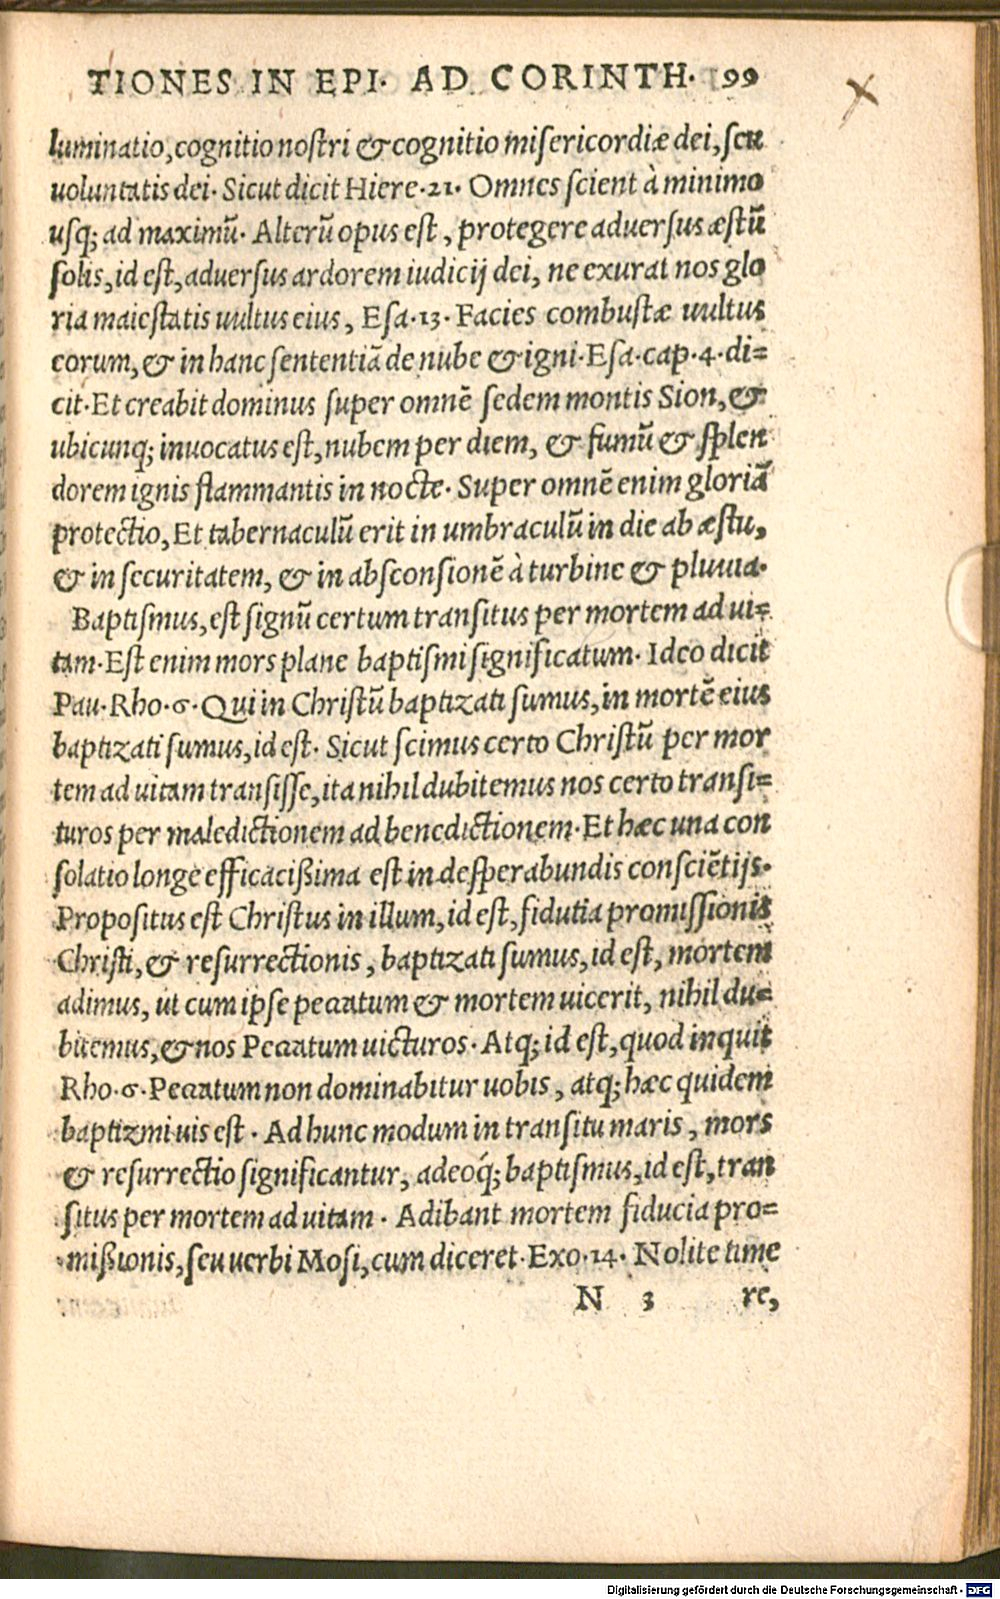 TIONES IN EPI. AD CORINTH. 99
luminatio, cognitio nostri & cognitio misericordiæ dei, seu
uoluntatis dei. Sicut dicit Hiere. 21. Omnes scient à minimo
usq; ad maximũ. Alterũ opus est, protegere aduersus æstũ
solis, id est, aduersus ardorem iudicij dei, ne exurat nos glo
ria maiestatis uultus eius, Esa. 13. Facies combustæ uultus
eorum, & in hanc sententiã de nube & igni. Esa. cap. 4. di=
cit. Et creabit dominus super omnẽ sedem montis Sion, &
ubicunq; inuocatus est, nubem per diem, & fumũ & splen
dorem ignis flammantis in nocte. Super omnẽ enim gloriã
protectio, Et tabernaculũ erit in umbraculũ in die ab æstu,
& in securitatem, & in absconsionẽ à turbine & pluuia.
Baptismus, est signũ certum transitus per mortem ad ui=
tam. Est enim mors plane baptismi significatum. Ideo dicit
Pau. Rho. 6. Qui in Christũ baptizati sumus, in mortẽ eius
baptizati sumus, id est. Sicut scimus certo Christũ per mor
tem ad uitam transisse, ita nihil dubitemus nos certo transi=
turos per maledictionem ad benedictionem. Et hæc una con
solatio longe efficacißima est in desperabundis consciẽtijs.
Propositus est Christus in illum, id est, fidutia promissionis
Christi, & resurrectionis, baptizati sumus, id est, mortem
adimus, ut cum ipse peccatum & mortem uicerit, nihil du=
bitemus, & nos Peccatum uicturos. Atq; id est, quod inquit
Rho. 6. Peccatum non dominabitur uobis, atq; hæc quidem
baptizmi uis est. Ad hunc modum in transitu maris, mors
& resurrectio significantur, adeoq́; baptismus, id est, tran
situs per mortem ad uitam. Adibant mortem fiducia pro=
mißionis, seu uerbi Mosi, cum diceret. Exo. 14. Nolite time
N 3 re,
Digitalisierung gefördert durch die Deutsche Forschungsgemeinschaft - DFG